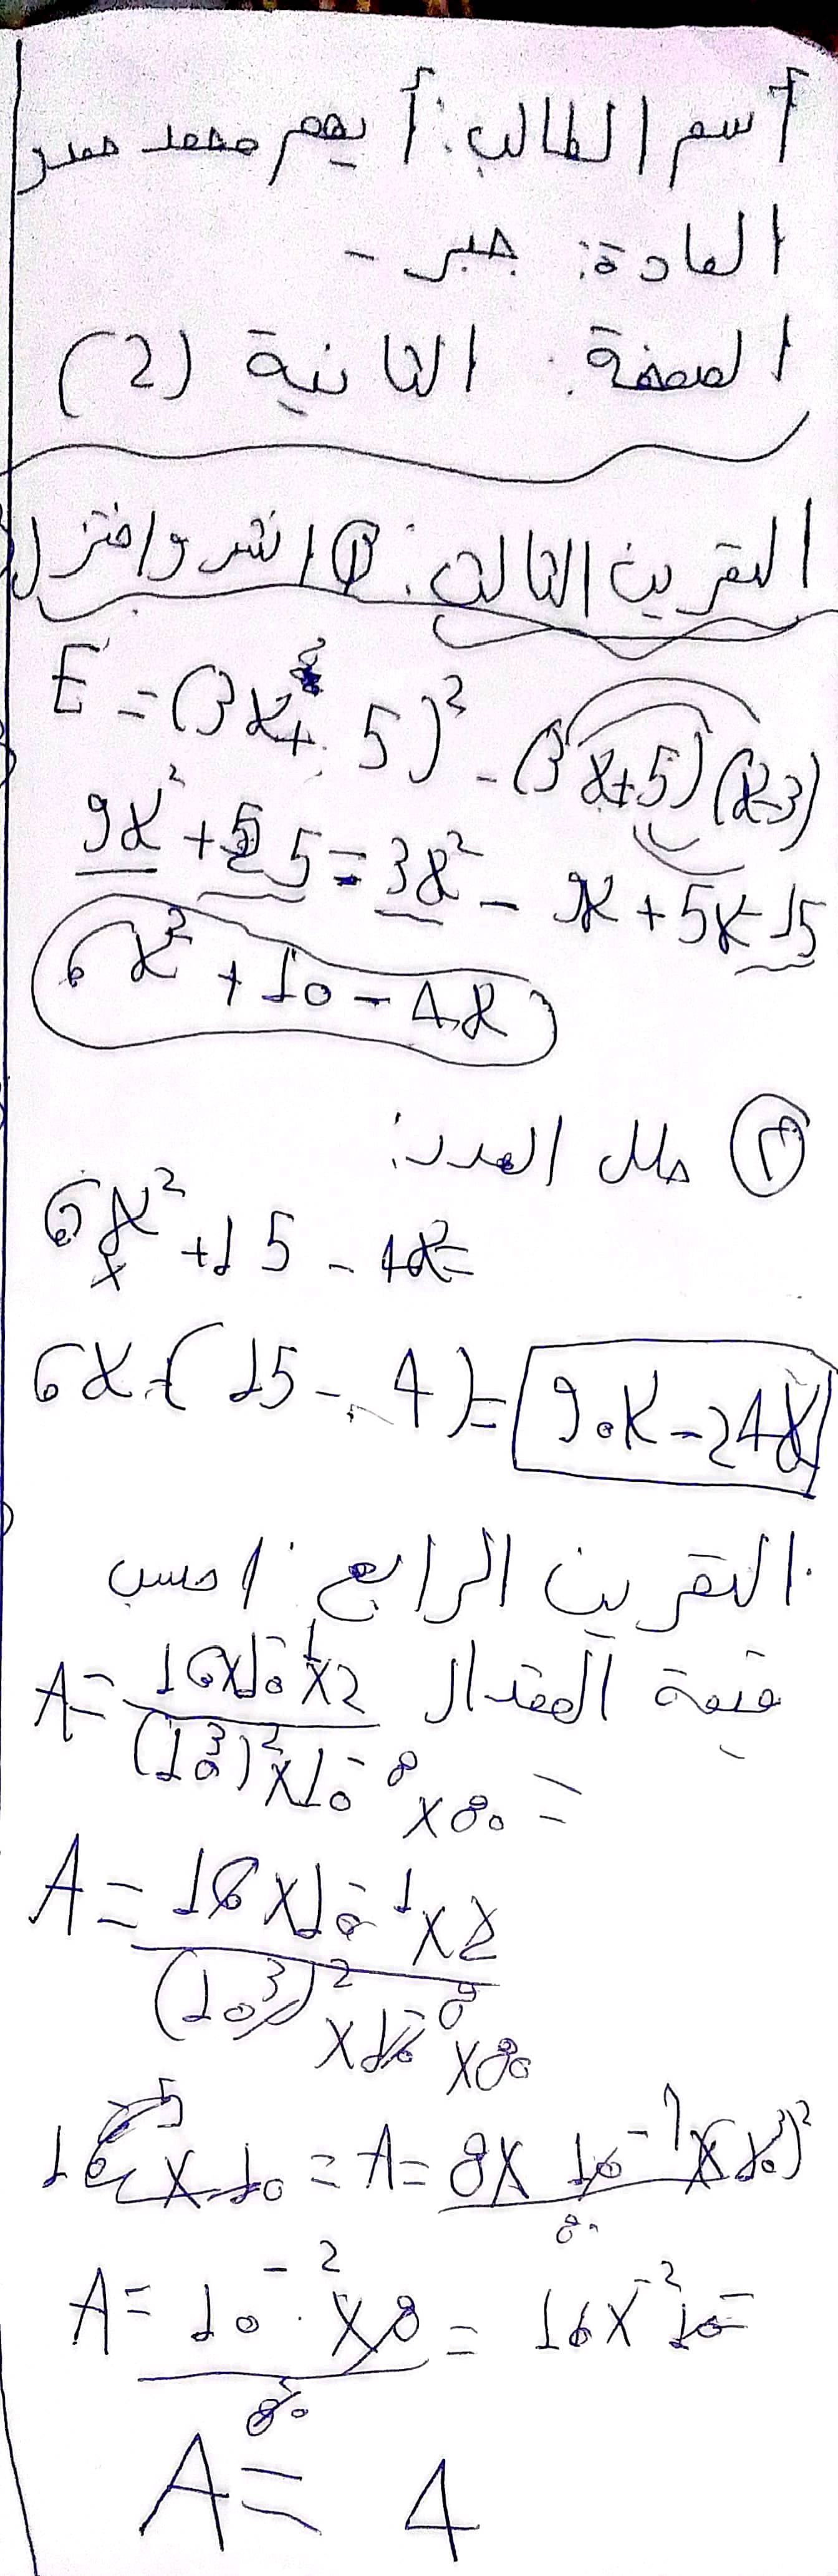 أسم الطالب: أيهم محمد حمدر
المادة: جبر -
الصفحة: الثانية (2)
التمرين الثالث: ① انشر واختزل
E = (3x + 5)² - (3x+5)(x-3)
9x² + 25 = 3x² - 9x + 5x - 15
6x² + 10 - 4x
② حلل العدد:
6x² + 15 - 4x =
6x - ( 15 - 4 ) = 90x - 24x
التمرين الرابع: احسب
قيمة المقدار A = 16x10⁻¹x2
(10³)² x10⁻⁸ x80 =
A = 16 x10⁻¹ x2
(10³)² x10⁻⁸ x80
x 10 = A = 8x 10⁻¹ x(10³)²
80
A = 10⁻² x8 = 16x⁻²10 =
80
A = 4